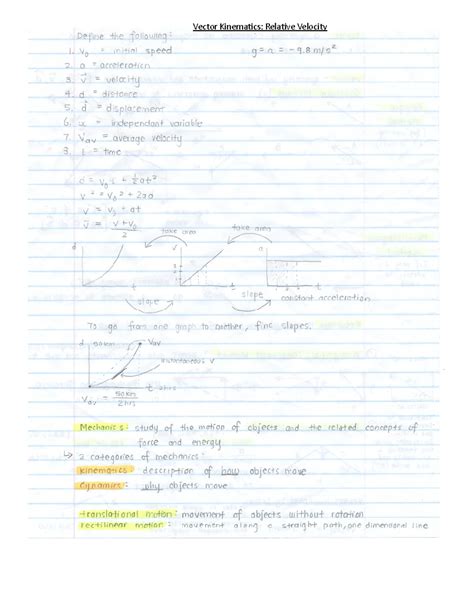 Vector Kinematics: Relative Velocity
Define the following:
1. V₀ = initial speed g = a = -9.8 m/s²
2. a = acceleration
3. v⃗ = velocity
4. d = distance
5. d⃗ = displacement
6. = independant variable
7. Vav = average velocity
8. t = time
d = v₀t + ½at²
v² = v₀² + 2
v = v₀ + at
v̅ = v+v₀
2
take area take area
d v a
t t t
slope slope constant acceleration
To go from one graph to another, find slopes.
d 50km Vav
instantaneous v
t 2hrs
Vav = 50km
2hrs
Mechanics: study of the motion of objects and the related concepts of
force and energy
↳ 2 categories of mechanics:
Kinematics: description of how objects move
Dynamics: why objects move
translational motion: movement of objects without rotation
rectilinear motion: movement along a straight path, one dimensional line